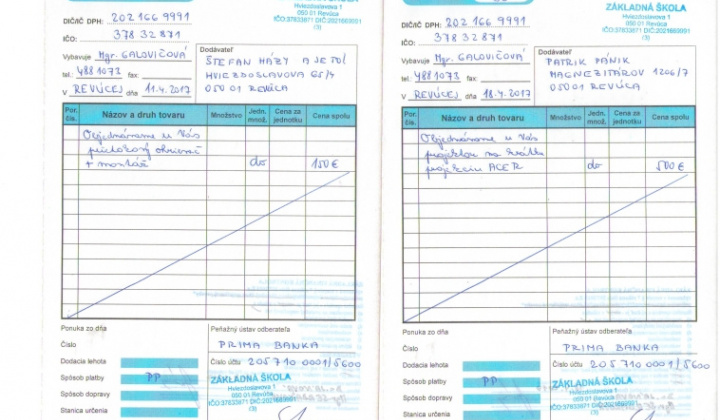 DIČ/IČ DPH: 202 166 9991
IČO: 378 32 871
Vybavuje Mgr. GALOVIČOVÁ
tel.: 4881073 fax:
V REVÚCEJ dňa 11.4.2017
Dodávateľ
ŠTEFAN HÁZY A JETOI
HVIEZDOSLAVOVA 65/4
050 01 REVÚCA
Por. čís.
Názov a druh tovaru
Množstvo
Jedn. množ.
Cena za jednotku
Cena spolu
Objednávame u Vás
+ montáž do 150 €
Ponuka zo dňa
Číslo
Dodacia lehota
Spôsob platby PP
Spôsob dopravy
Stanica určenia
Peňažný ústav odberateľa
PRIMA BANKA
Číslo účtu 205 710 0001/5600
ZÁKLADNÁ ŠKOLA
Hviezdoslavova 1
050 01 Revúca
(3)
ZÁKLADNÁ ŠKOLA
Hviezdoslavova 1
050 01 Revúca
IČO:37832871 DIČ:2021669991
(3)
DIČ/IČ DPH: 202 166 9991
IČO: 378 32 871
Vybavuje Mgr. GALOVIČOVÁ
tel.: 4881073 fax:
V REVÚCEJ dňa 18.4.2017
Dodávateľ
PATRIK PÁNIK
MAGNEZITÁROV 1206/7
050 01 REVÚCA
Por. čís.
Názov a druh tovaru
Množstvo
Jedn. množ.
Cena za jednotku
Cena spolu
Objednávame u Vás
projektor na krátku
projekciu ACER do 500 €
Ponuka zo dňa
Číslo
Dodacia lehota
Spôsob platby PP
Spôsob dopravy
Stanica určenia
Peňažný ústav odberateľa
PRIMA BANKA
Číslo účtu 205 710 0001/5600
ZÁKLADNÁ ŠKOLA
Hviezdoslavova 1
050 01 Revúca
IČO:37832871 DIČ:2021669991
(3)